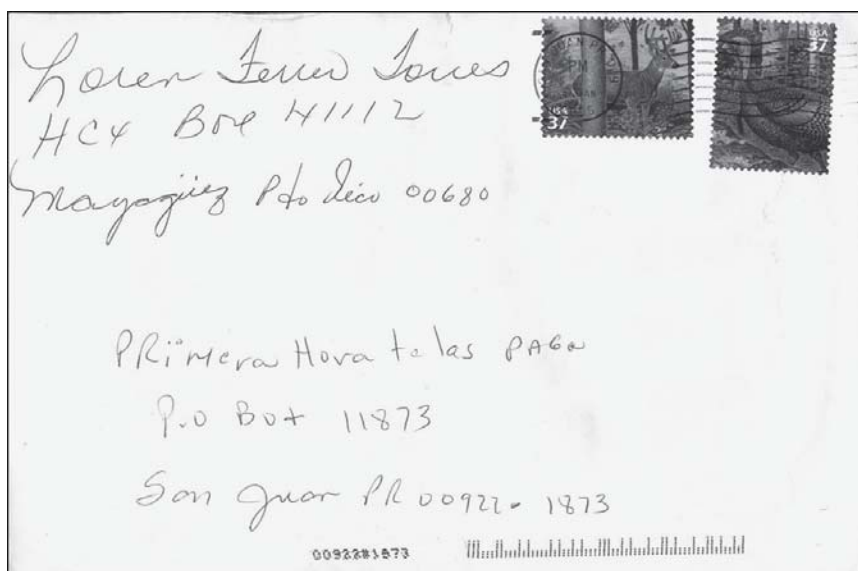 Loren Ferrer Torres
HC4 Box 41112
Mayagüez Pto Rico 00680
USA
37
USA
37
PM
PRimera Hora te las PAGA
P.O Box 11873
San Juan PR 00922-1873
00922#1873